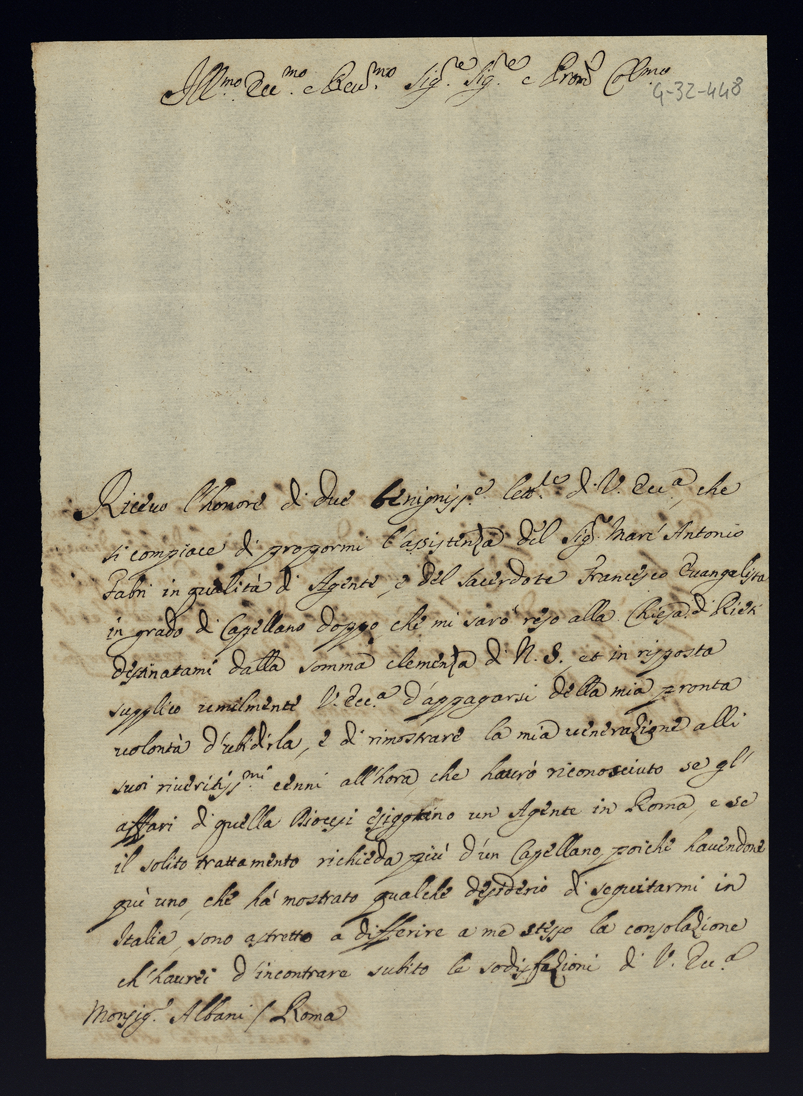 Ill.mo Ecc.mo e Rev.mo Sig.re Sig.re e Pron Col.mo
4-32-448
Ricevo l'honore di due benigniss.e lett.re di V. Ecc.a, che
si compiace di propormi l'assistenza del Sig.r Marc' Antonio
Fabri in qualità di Agente, e del Sacerdote Francesco Evangelista
in grado di Capellano doppo, che mi sarò reso alla Chiesa di Rieti
destinatami dalla somma clemenza di N. S. et in risposta
supplico umilmente V. Ecc.a d'appagarsi della mia pronta
volontà d'ubidirla, e di rimostrare la mia venerazione alli
suoi riveritiss.mi cenni all'hora che haurò riconosciuto se gl'
affari di quella Diocesi esiggono un Agente in Roma, e se
il solito trattamento richieda più d'un Capellano, poiche havendone
quì uno, che hà mostrato qualche desiderio di seguitarmi in
Italia, sono astretto a differire a me stesso la consolazione
ch'haurei d'incontrare subito le sodisfazioni di V. Ecc.a
Monsig.r Albani / Roma